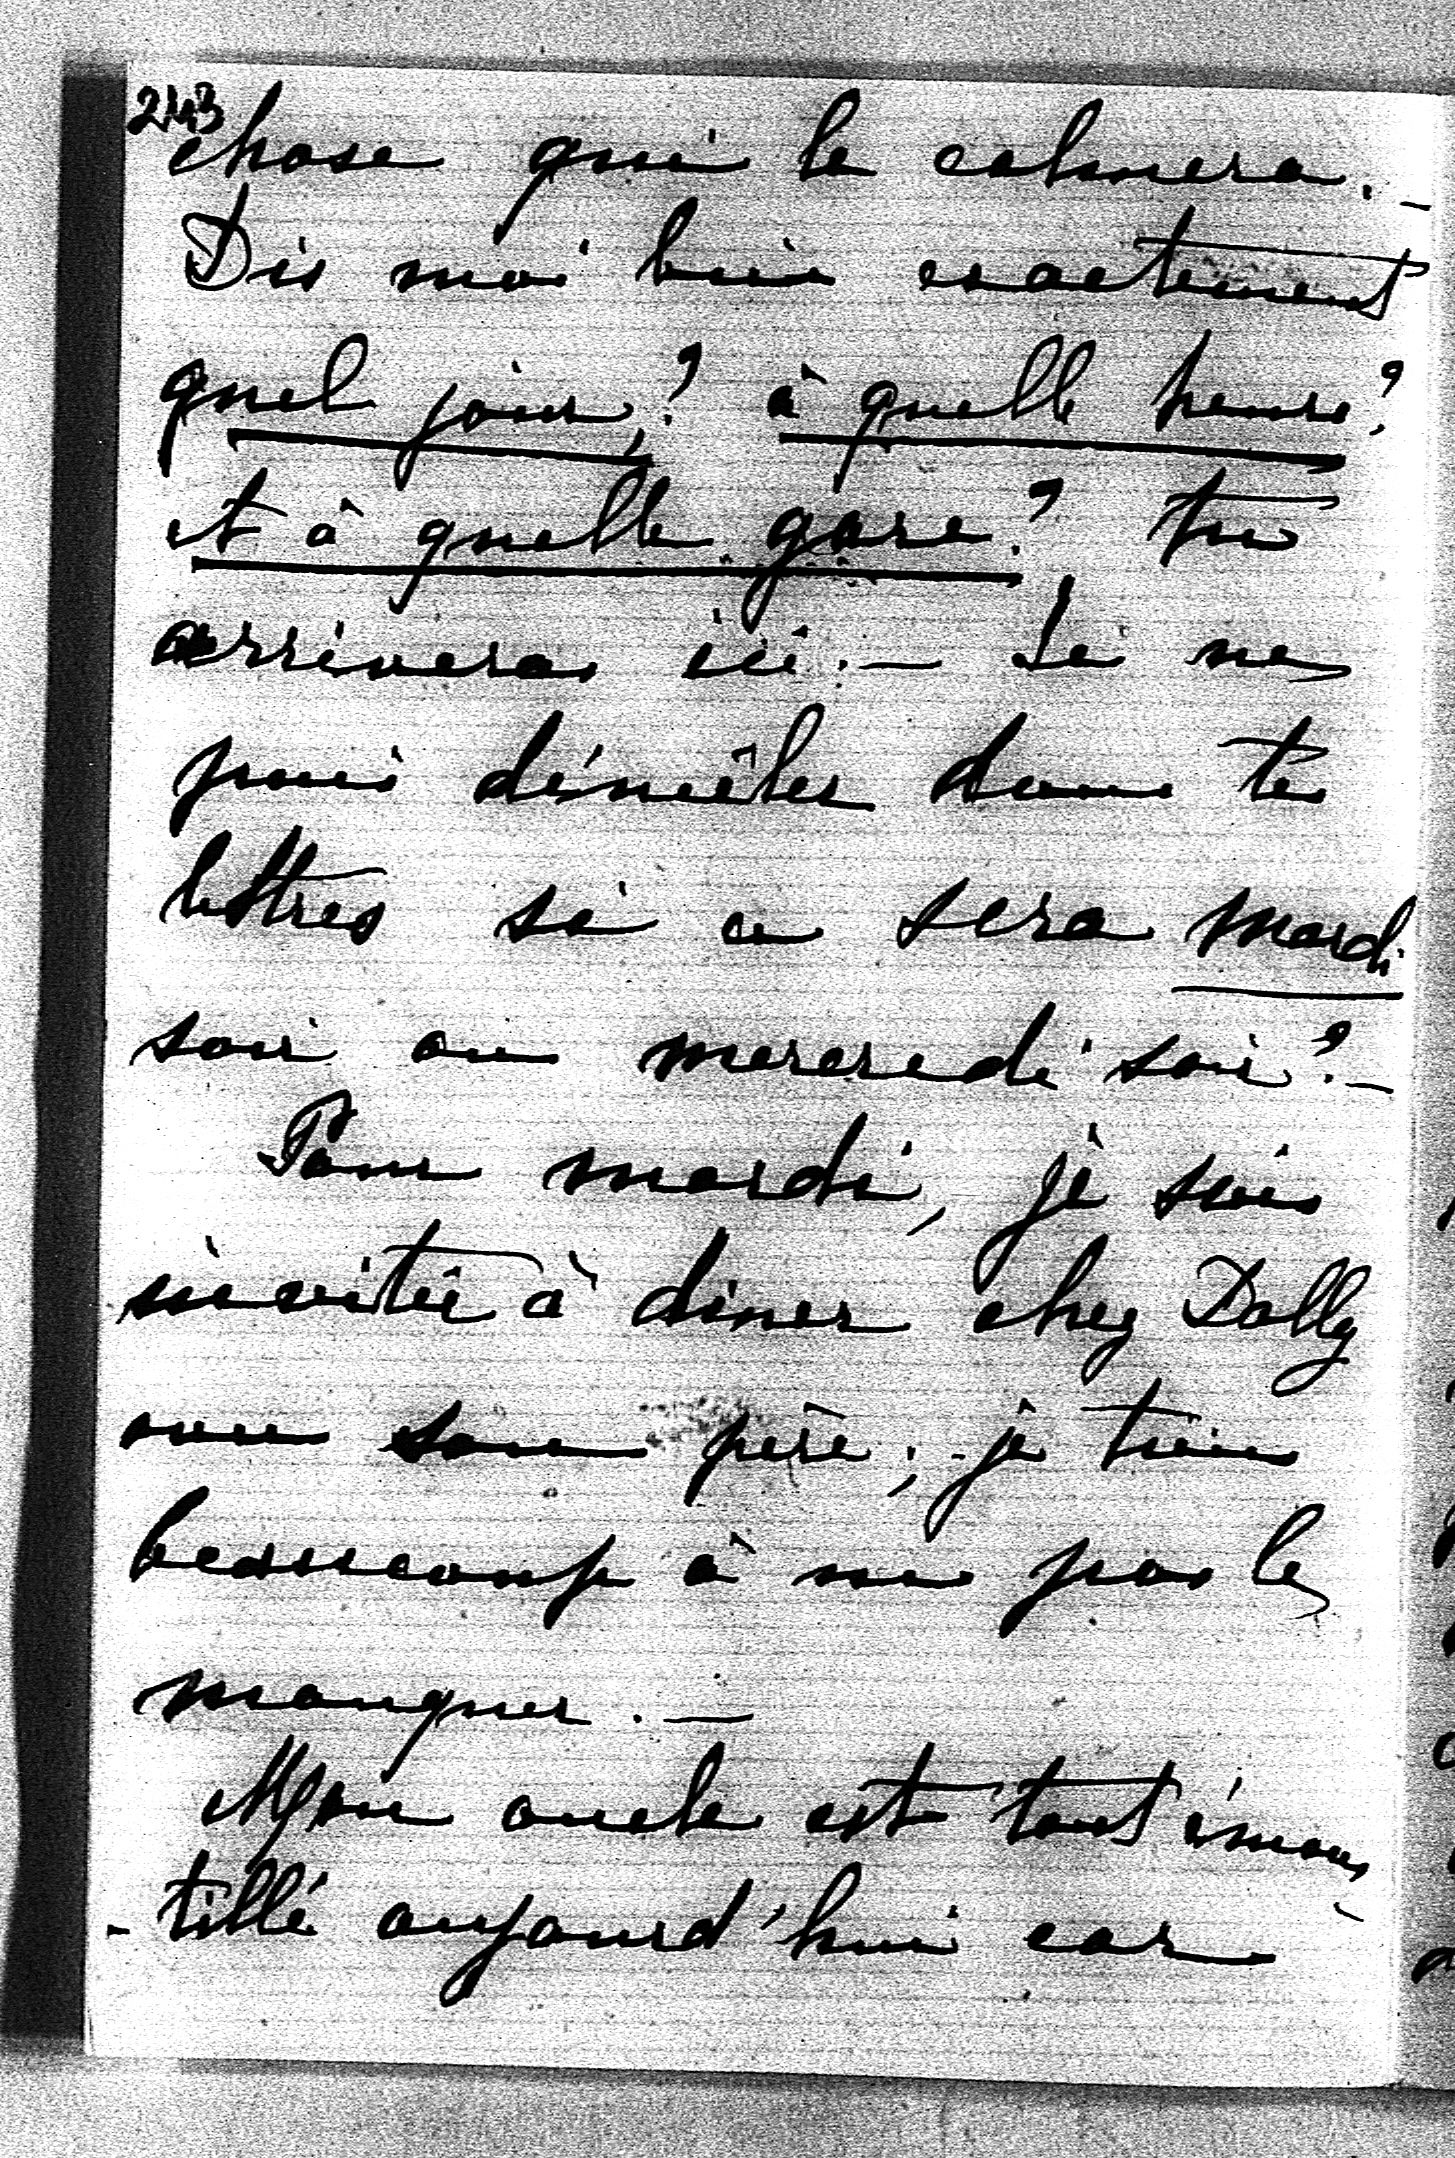 243
chose qui le calmera. –
Dis moi bien exactement
quel jour,? à quelle heure?,
et à quelle gare? tu
arriveras ici. – Je ne
puis démêler dans tes
lettres si ce sera mardi
soir ou mercredi soir? –
Pour mardi, je suis
invitée à diner chez Dolly
avec son père; je tiens
beaucoup à ne pas le
manquer. –
Mon oncle est tout émous-
-tillé aujourd'hui car